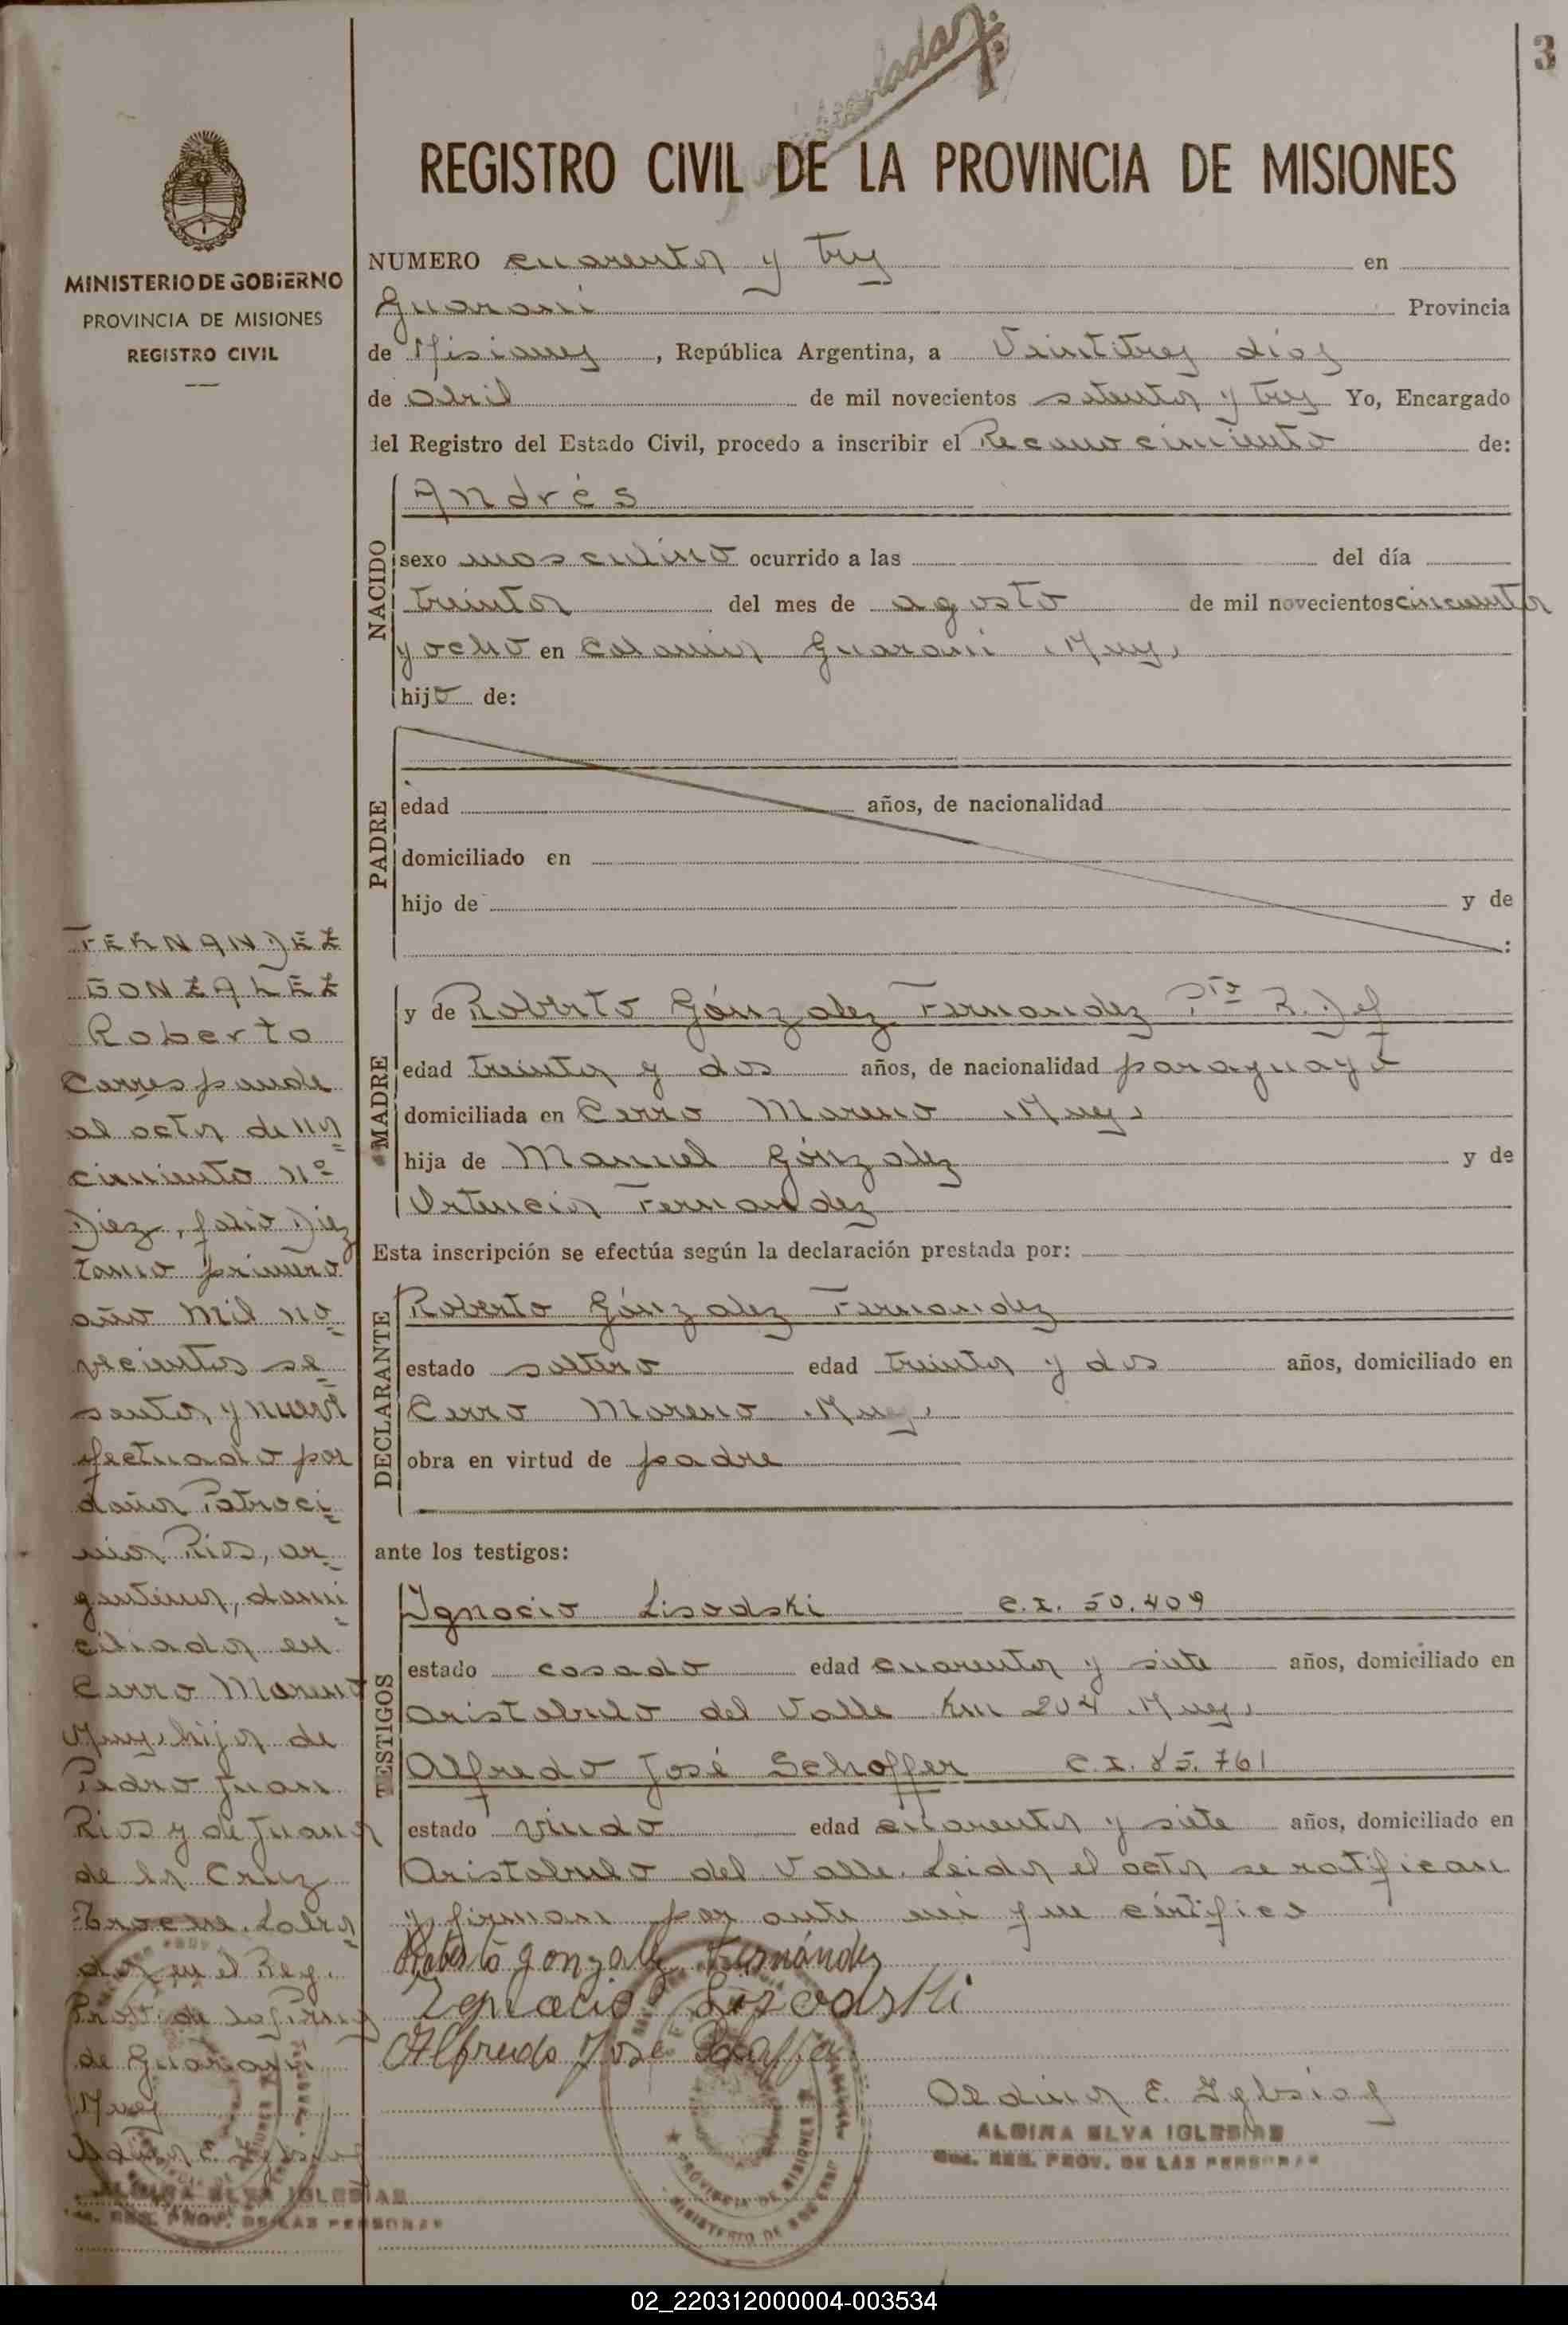 3
REGISTRO CIVIL DE LA PROVINCIA DE MISIONES
MINISTERIO DE GOBIERNO
PROVINCIA DE MISIONES
REGISTRO CIVIL
NUMERO cuarenta y tres en
Guaraní Provincia
de Misiones, República Argentina, a Veintitres días
de Abril de mil novecientos setenta y tres Yo, Encargado
del Registro del Estado Civil, procedo a inscribir el Reconocimiento de:
NACIDO
Andrés
sexo masculino ocurrido a las del día
treinta del mes de agosto de mil novecientos cincuenta
y ocho en Colonia Guaraní Mnes.
hijo de:
PADRE
edad años, de nacionalidad
domiciliado en
hijo de y de
:
MADRE
y de Roberto Gónzalez Fernandez
edad treinta y dos años, de nacionalidad paraguayo
domiciliada en Cerro Moreno Mnes.
hija de Manuel Gónzalez y de
Ortencia Fernandez
Esta inscripción se efectúa según la declaración prestada por:
DECLARANTE
Roberto Gónzalez Fernandez
estado soltero edad treinta y dos años, domiciliado en
Cerro Moreno Mnes.
obra en virtud de padre
ante los testigos:
TESTIGOS
Ignacio Lisodski C.I. 50.409
estado casado edad cuarenta y siete años, domiciliado en
Aristobulo del Valle Km 204 Mnes.
Alfredo José Schoffer C.I. 85.761
estado viudo edad cuarenta y siete años, domiciliado en
Aristobulo del Valle. Leida el acta se ratifican
y firman por ante mi que cértifico
Roberto gonzalez Fernández
Ignacio
Alfredo José
Aldina E. Iglesias
ALDINA ELVA IGLESIAS
REG. PROV. DE LAS PERSONAS
PROVINCIA DE MISIONES
MINISTERIO DE GOBIERNO
FERNANDEZ
GONZALEZ
Roberto
Corresponde
al acta de na
cimiento nº
Diez, folio Diez
tomo primero
año Mil no
vecientos se
senta y nueve
efectuado por
doña Patroci
nia Rios, ar
gentina, domi
ciliada en
Cerro Moreno
Mnes. hija de
Pedro Juan
Rios y de Juana
de la Cruz
Labra
da en el Reg.
Prov. de las Pers
de Guaraní
Mnes
ALDINA ELVA IGLESIAS
REG. PROV. DE LAS PERSONAS
02_220312000004-003534